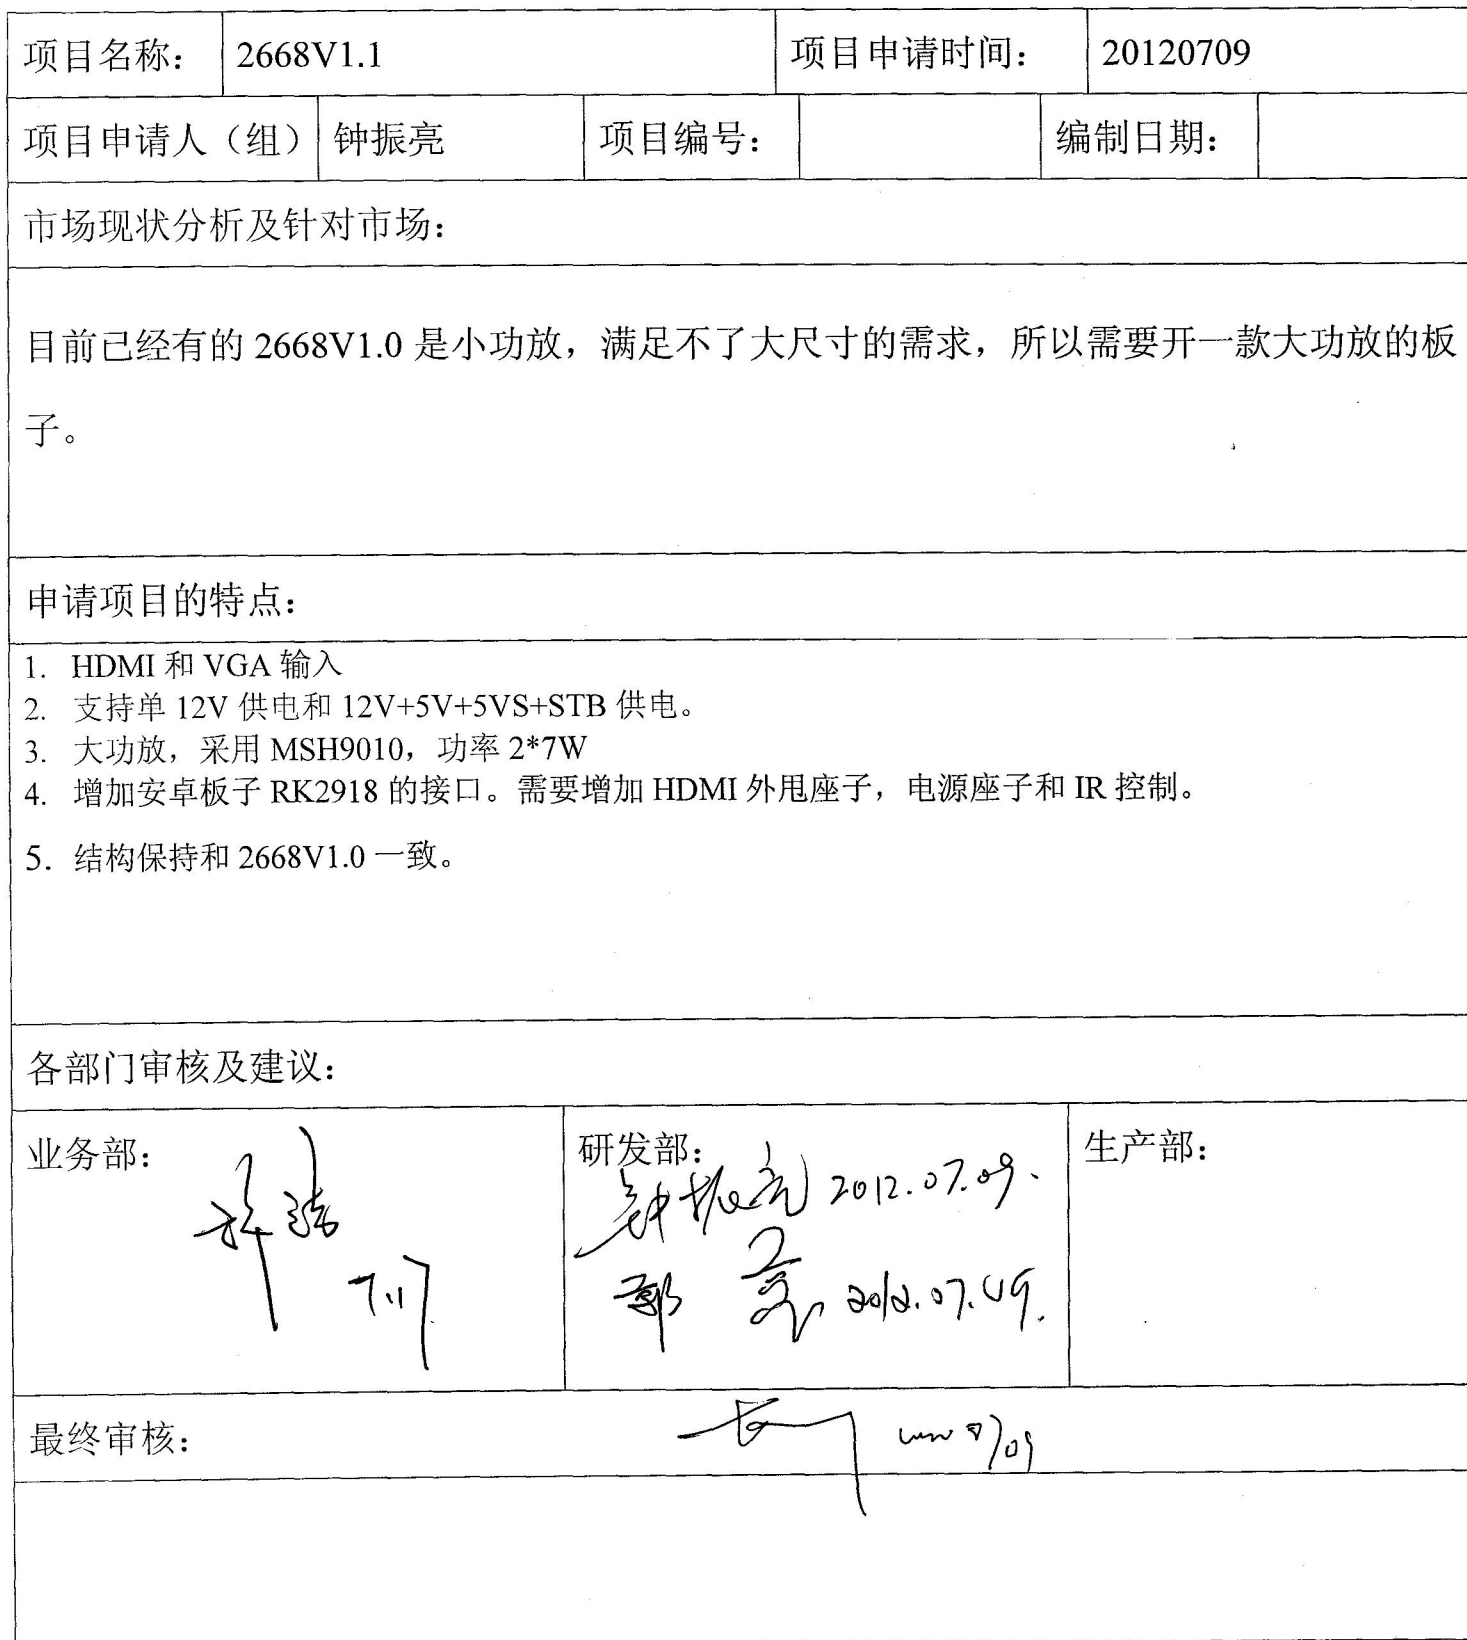 项目名称： 2668V1.1 项目申请时间： 20120709
项目申请人（组） 钟振亮 项目编号： 编制日期：
市场现状分析及针对市场：
目前已经有的 2668V1.0 是小功放，满足不了大尺寸的需求，所以需要开一款大功放的板
子。
申请项目的特点：
1. HDMI 和 VGA 输入
2. 支持单 12V 供电和 12V+5V+5VS+STB 供电。
3. 大功放，采用 MSH9010，功率 2*7W
4. 增加安卓板子 RK2918 的接口。需要增加 HDMI 外甩座子，电源座子和 IR 控制。
5. 结构保持和 2668V1.0 一致。
各部门审核及建议：
业务部： 研发部： 生产部：
钟振亮 2012.07.09.
2012.07.09.
最终审核：